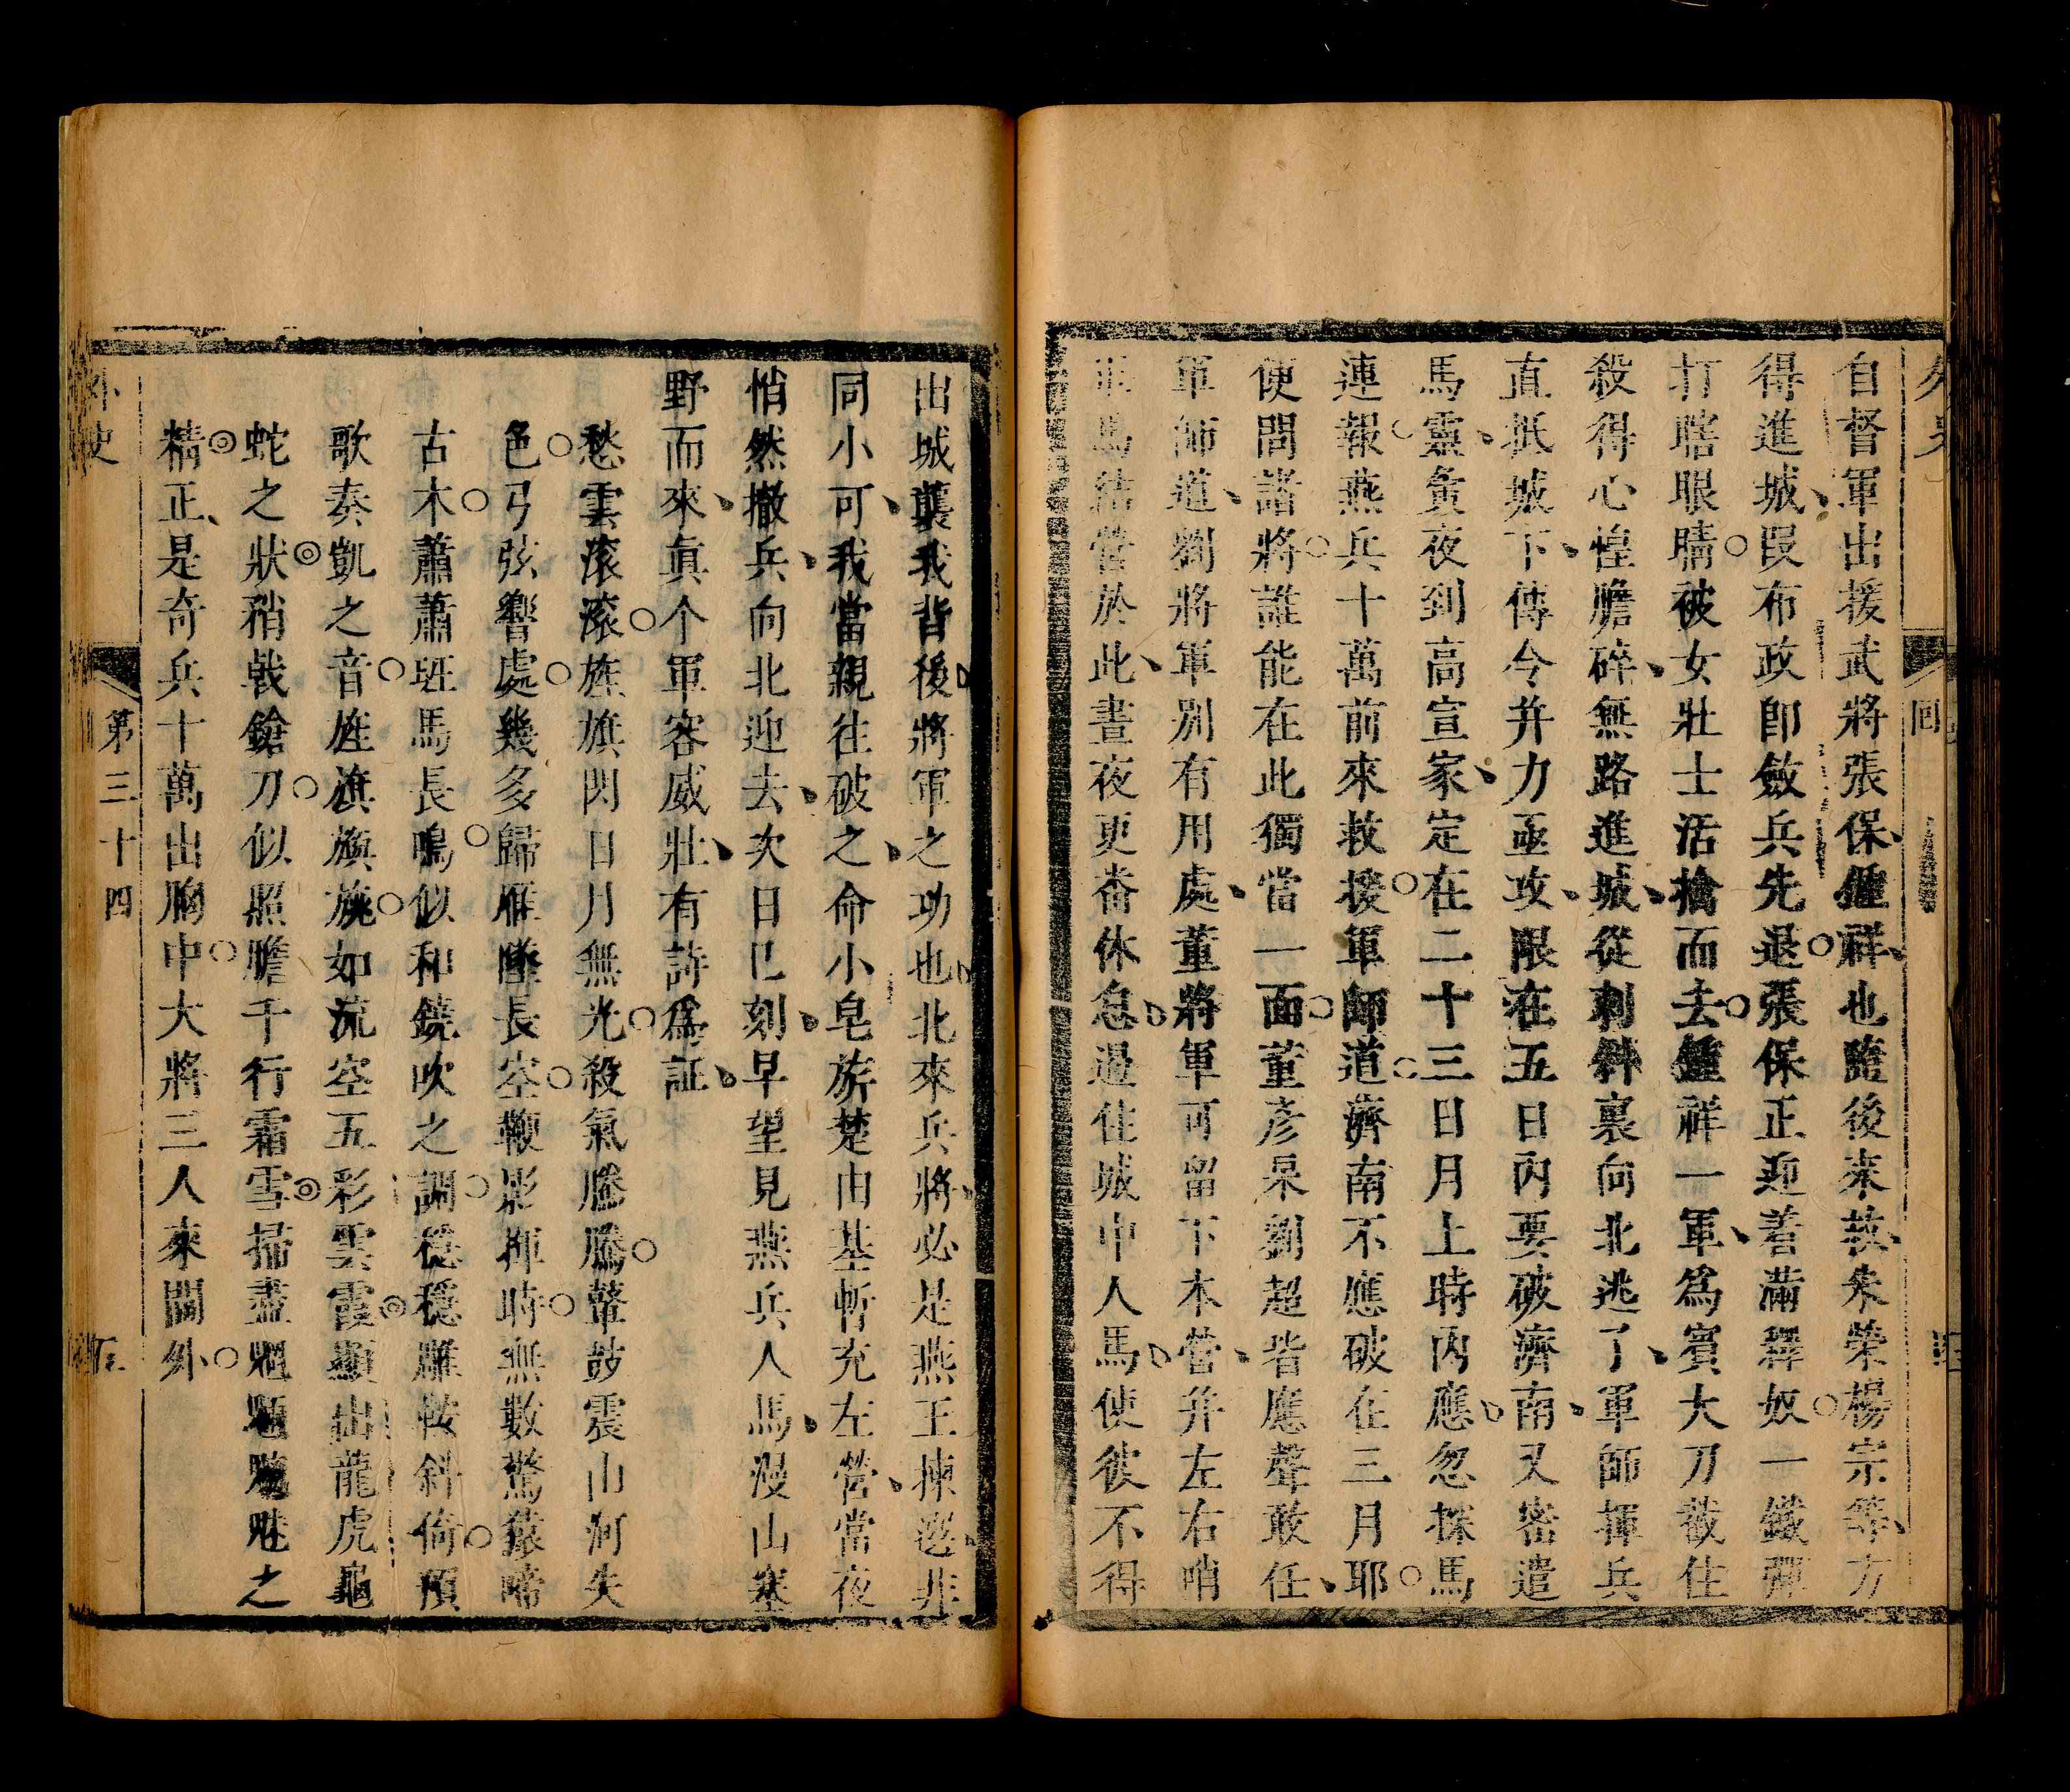 外史
回
自督軍出援武將張保鍾祥也隨後來救朱榮楊宗等方
得進城段布政即斂兵先退張保正迎着滿釋奴一鐵彈
打瞎眼睛被女壯士活擒而去鍾祥一軍爲賓大刀截住
殺得心惶膽碎無路進城從刺斜裏向北逃了軍師揮兵
直抵城下傳令并力亟攻限在五日內要破濟南又密遣
馬靈夤夜到高宣家定在二十三日月上時內應忽探馬
連報燕兵十萬前來救援軍師道濟南不應破在三月耶
便問諸將誰能在此獨當一面董彥杲劉超皆應聲敢任
軍師道劉將軍別有用處董將軍可留下本營并左右哨
軍馬結營於此晝夜更番休息遏住城中人馬使彼不得
出城襲我背後將軍之功也北來兵將必是燕王揀選非
同小可我當親往破之命小皂旂楚由基暫充左營當夜
悄然撤兵向北迎去次日巳刻早望見燕兵人馬漫山塞
野而來眞个軍容威壯有詩爲証
愁雲滾滾旌旗閃日月無光殺氣騰騰鼙鼓震山河失
色弓弦響處幾多歸雁墜長空鞭影揮時無數驚猿啼
古木蕭蕭班馬長鳴似和鐃吹之調穩穩雕鞍斜倚預
歌奏凱之音旌旗旖旎如流空五彩雲霞顯出龍虎龜
蛇之狀矟戟鎗刀似照膽千行霜雪掃盡魍魎魑魅之
精正是奇兵十萬出胸中大將三人來閫外
外史
第三十四